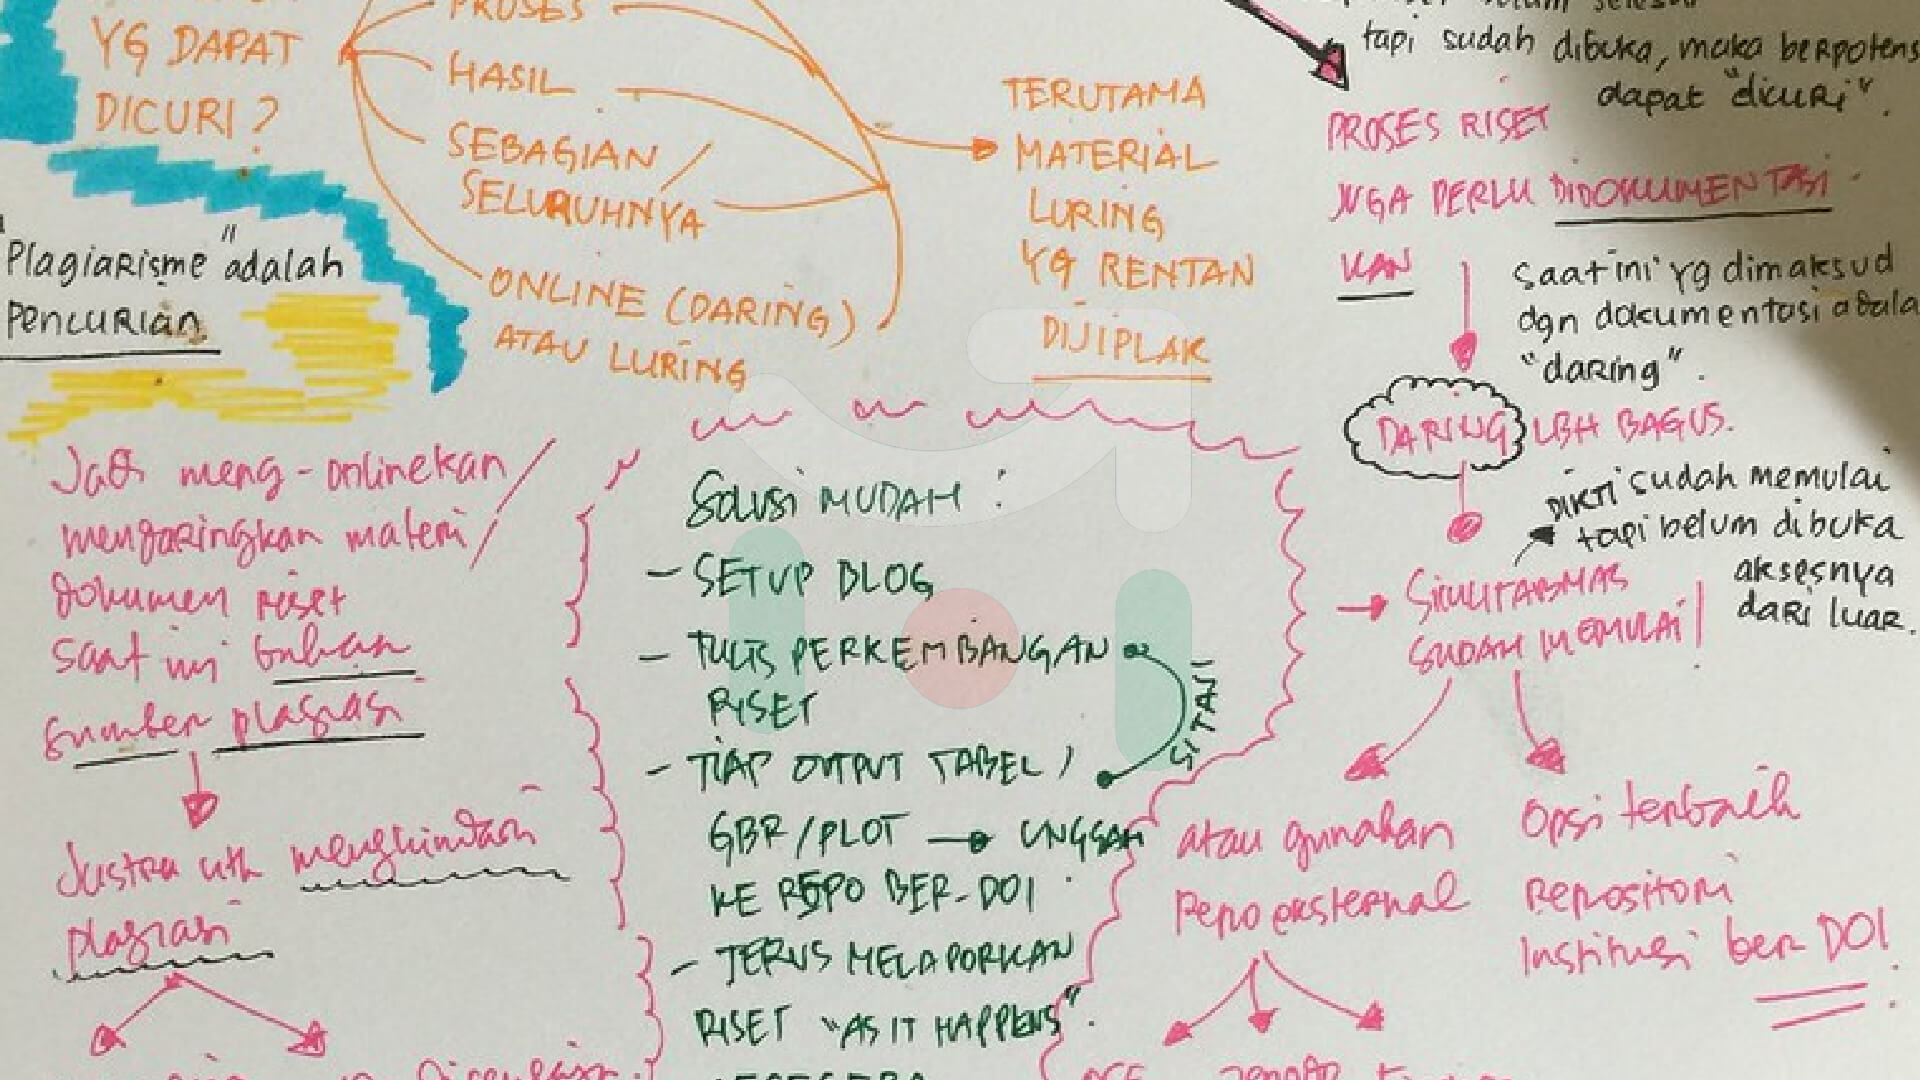 YG DAPAT
DICURI?
PROSES
HASIL
SEBAGIAN /
SELURUHNYA
ONLINE (DARING)
ATAU LURING
TERUTAMA
MATERIAL
LURING
YG RENTAN
DIJIPLAK
"Plagiarisme" adalah
Pencurian
tapi sudah dibuka, maka berpotens
dapat "dicuri".
PROSES RISET
JUGA PERLU DIDOKUMENTASI
KAN
saat ini yg dimaksud
dgn dokumentasi adala
"daring".
DARING LBH BAGUS.
DIKTI sudah memulai
tapi belum dibuka
aksesnya
dari luar.
SIMLITABMAS
SUDAH MEMULAI
atau gunakan
repo eksternal
Opsi terbaik
Repositori
Institusi ber DOI
Jadi meng-onlinekan /
mendaringkan materi /
dokumen riset
saat ini bukan
sumber plagiasi
Justru utk menghindari
plagiasi
SOLUSI MUDAH :
- SETUP BLOG
- TULIS PERKEMBANGAN
RISET
SITASI
- TIAP OUTPUT TABEL /
GBR/PLOT → UNGGAH
KE REPO BER-DOI
- TERUS MELAPORKAN
RISET "AS IT HAPPENS".